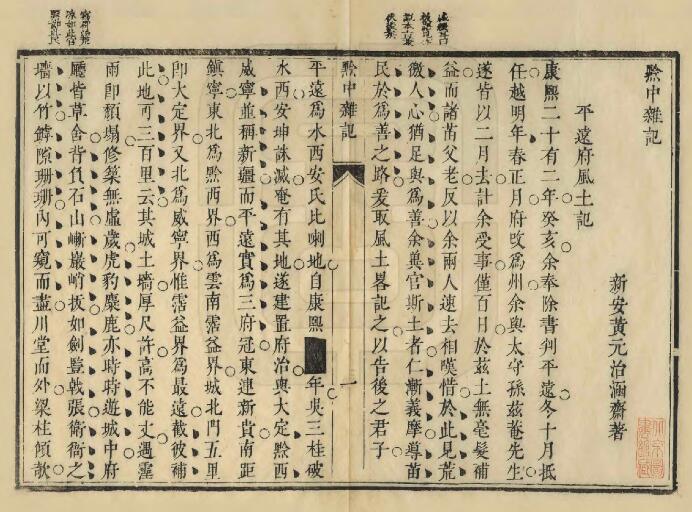 黔中雜記
新安黃元治涵齋著
平遠府風土記
康熙二十有二年癸亥余奉除書判平遠冬十月抵
任越明年春正月府改為州余與太守孫茲菴先生
遂皆以二月去計余受事僅百日於茲土無毫髮補
益而諸苗父老反以余兩人速去相嘆惜於此見荒
徼人心猶足與為善余冀官斯土者仁漸義摩導苗
民於為善之路爰取風土畧記之以告後之君子
黔中雜記
一
平遠為水西安氏比喇地自康熙年吳三桂破
水西安坤誅滅奄有其地遂建置府治與大定黔西
威寧並稱新疆而平遠實為三府冠東連新貴南距
鎮寧東北為黔西界西為雲南霑益界城北門五里
卽大定界又北為威寧界惟霑益界為最遠截彼補
此地可三百里云其城土墻厚尺許高不能丈遇霪
雨卽頹塌修築無虛歲虎豹麋鹿亦時時遊城中府
廳皆草舍背負石山嶄巖峭拔如劍豎戟張衛衙之
墻以竹罅隙珊珊內可窺而盡川堂而外梁柱傾欹